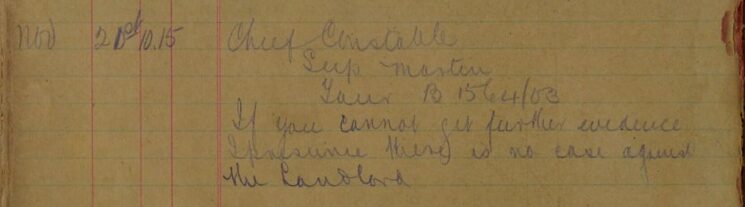 Nov 21st 10.15 Chief Constable
Sup Martin
Your B 1564/03
If you cannot get further evidence
I presume there is no case against
the Landlord